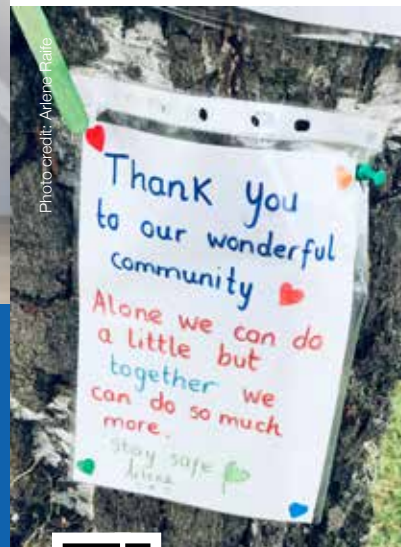 Photo credit: Arlene Raife
Thank You
to our wonderful
community
Alone we can do
a little but
together we
can do so much
more.
Stay safe